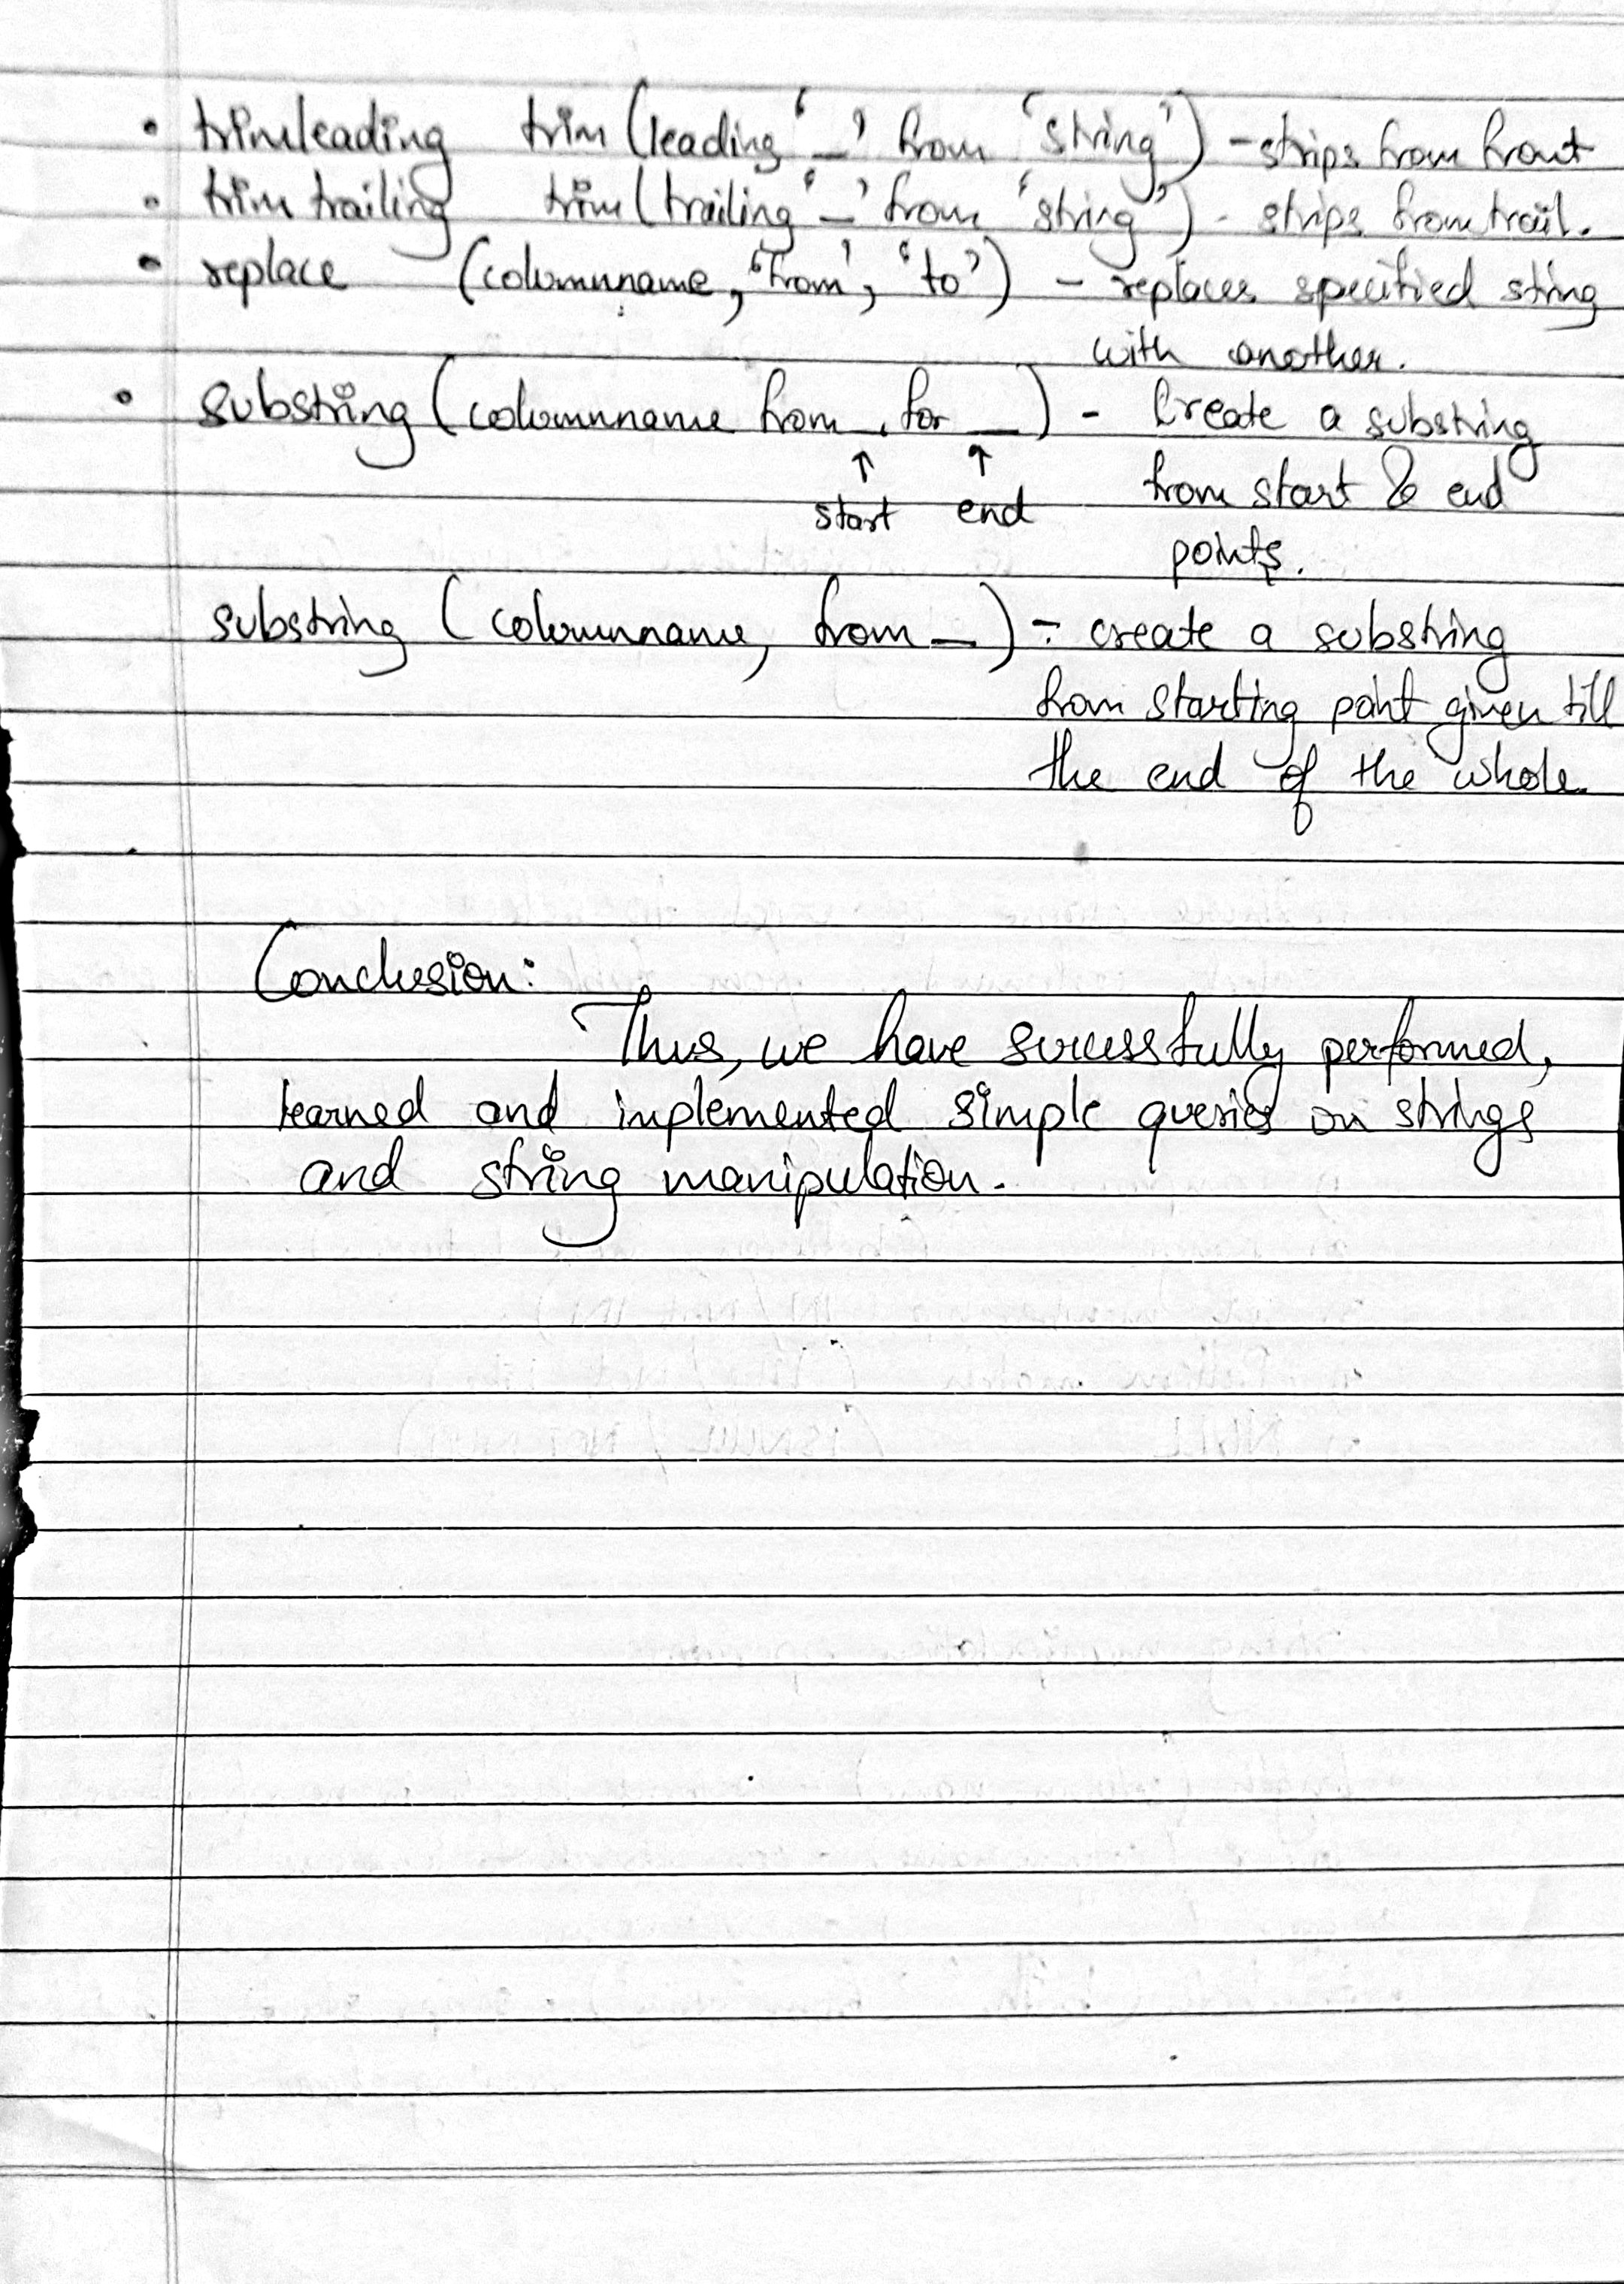 • trimleading trim (leading '_' from 'string') - strips from front
• trim trailing trim (trailing '_' from 'string') - strips from trail.
• replace (columnname, 'from', 'to') - replaces specified string
with another.
• substring (columnname from _, for __) - Create a substring
↑ ↑ from start & end
start end points.
substring (columnname, from _) - create a substring
from starting point given till
the end of the whole.
Conclusion:
Thus, we have successfully performed,
learned and implemented simple queries on strings
and string manipulation.